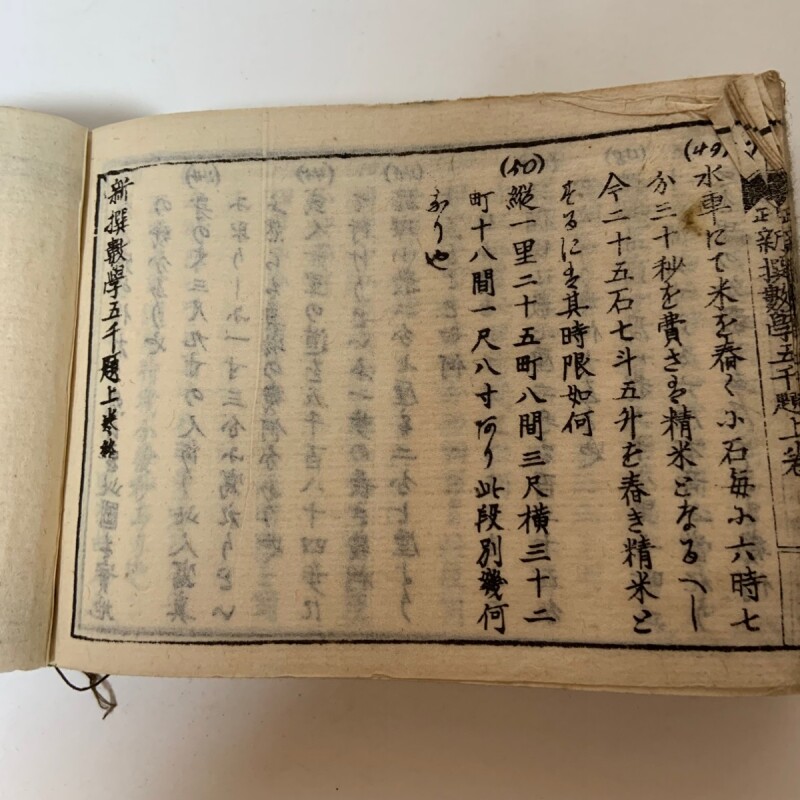 正新撰數學五千題上卷
(49)
水車にて米を舂く小石每に六時七
分三十秒を費さば精米となるべし
今二十五石七斗五升を舂き精米と
するには其時限如何
(50)
縱一里二十五町八間三尺橫三十二
町十八間一尺八寸阿り此段別幾何
なりや
新撰數學五千題上卷終